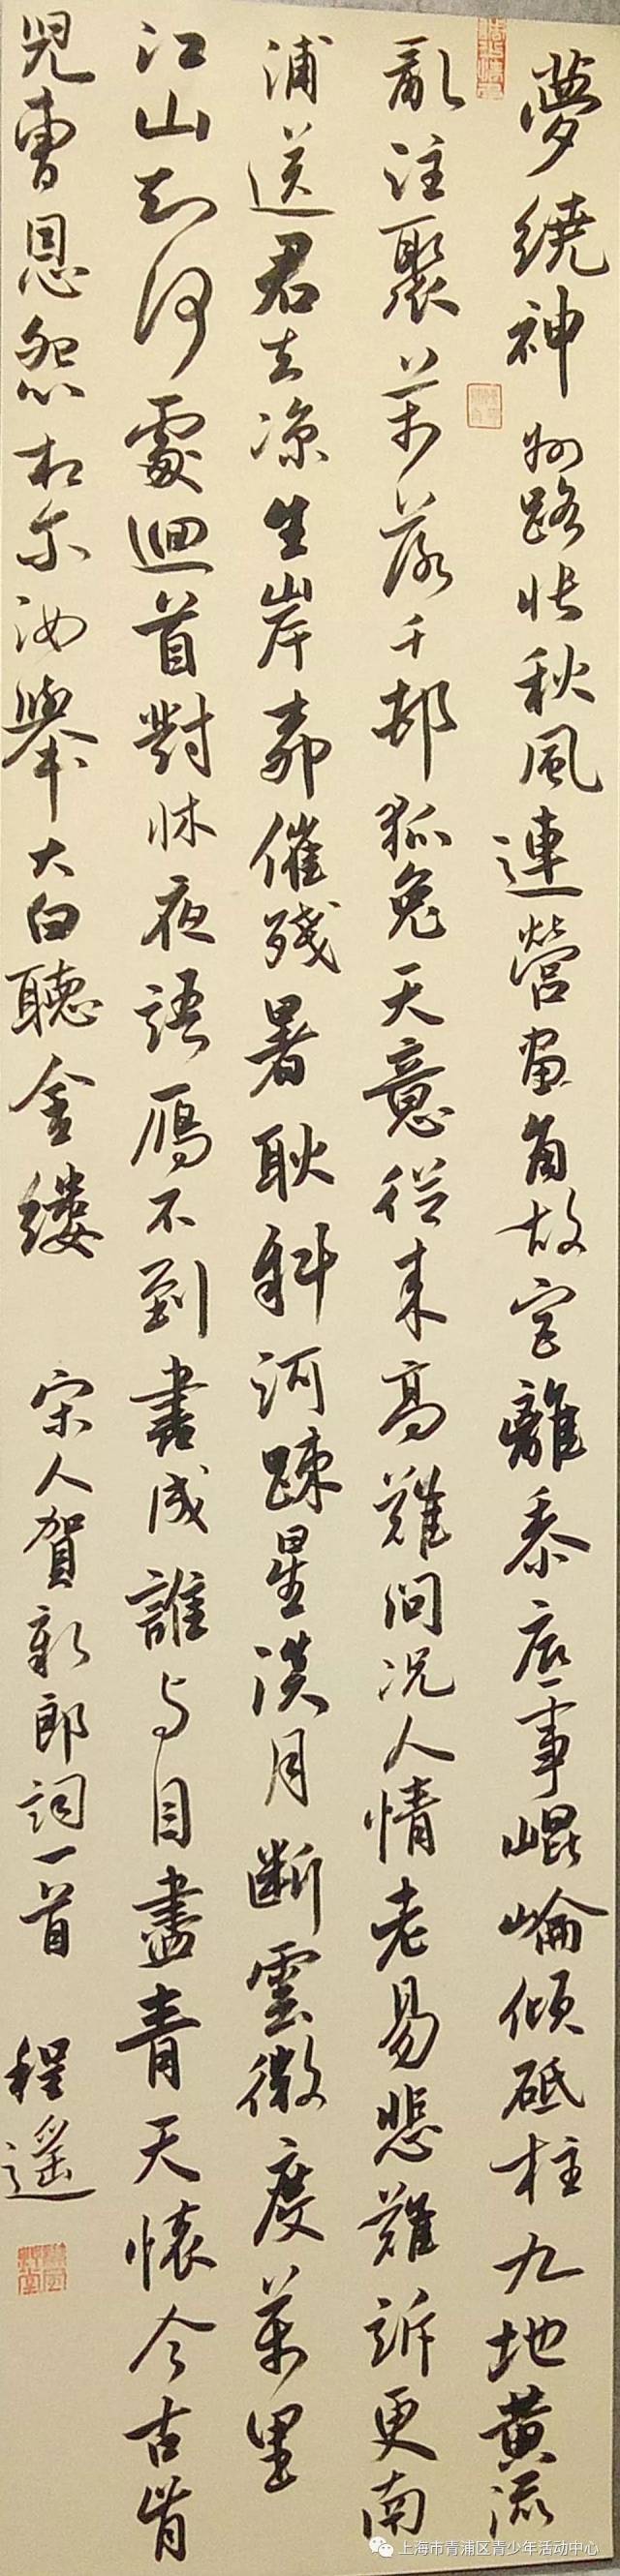 夢繞神州路悵秋風連營畫角故宮離黍底事崐崘傾砥柱九地黃流
亂注聚萬落千邨狐兔天意從來高難問况人情老易悲難訴更南
浦送君去凉生岸柳催殘暑耿斜河疎星淡月斷雲微度萬里
江山知何處迴首對牀夜語鴈不到書成誰与目盡青天懷今古肯
兒曹恩怨相尔汝舉大白聽金縷 宋人賀新郎詞一首 程遥
上海市青浦区青少年活动中心